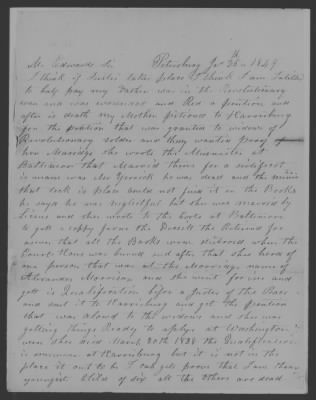 Mr. Edwards Sir Petersburg Jan 26th 1849
I think if Justis takes place I think I am Intitled
to half pay my Father was in the Revolutionary
war and was wounded and Red a pention and
after is death my Mother pictioned to Harrisburg
for the pention that was granted to widows of
Revolutionary solder and they wanted proof
her Marridge she wrote the Minnester at
Baltimore that Married them for a sirtificet
is name was Mr he was dead and the minis
that took is place could not find it on the Books
he says he was neglectful but she was married by
Lisens and she wrote to the Corte at Baltimore
to gett a coppy from the Dockett the Returnd for
answer that all the Books were distroed when the
Court House was burned and after that she heard of
one person that was at the Marriage name of
Alexander and she went for him and
gott is Qualification before a Justes of the Peace
and sent it to Harrisburg and got the pention
that was alowed to the widows and she was
getting things Ready to aply at Washington
when she died March 30th 1838 the Qualification
is at Harrisburg but it is not in the
place it out to be I can gett proof that I am their
youngest Child of six all the others are dead